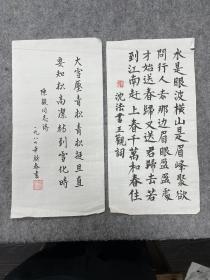 水是眼波横山是眉峰聚欲
问行人去那边眉眼盈盈处
才始送春归又送君归去若
到江南赶上春千万和春住
沈法书王观词
大雪压青松青松挺且直
要知松高洁待到雪化时
陈毅同志诗